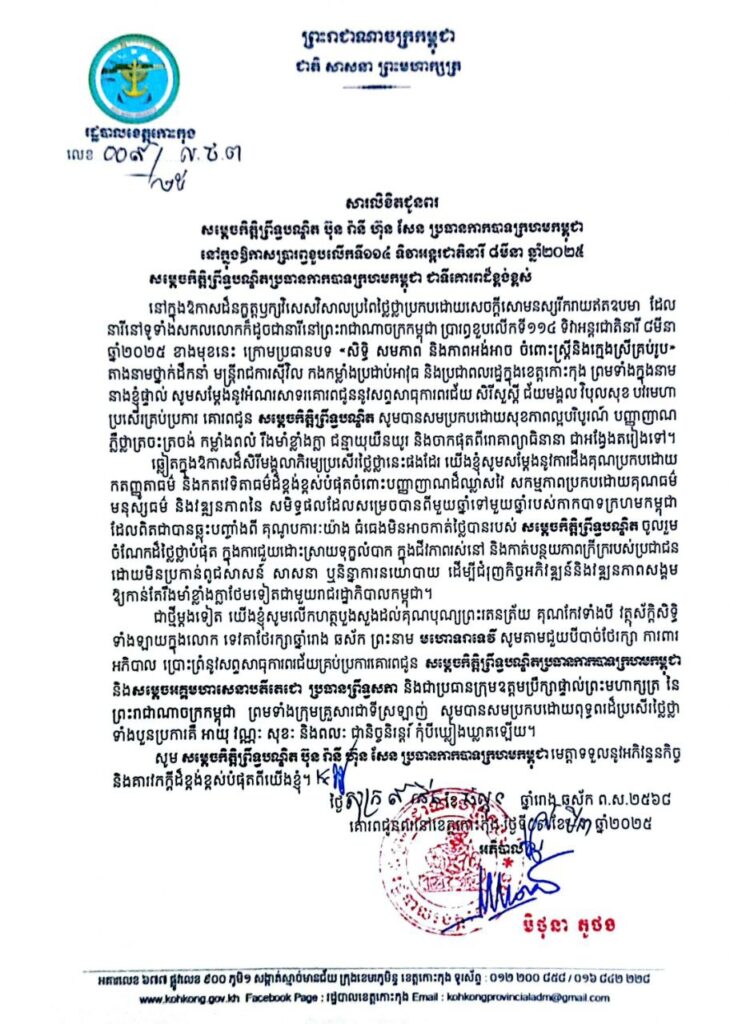 ព្រះរាជាណាចក្រកម្ពុជា
ជាតិ សាសនា ព្រះមហាក្សត្រ
រដ្ឋបាលខេត្តកោះកុង
លេខ ០០៩/២៥ ល.ជ.ព
សារលិខិតជូនពរ
សម្តេចកិត្តិព្រឹទ្ធបណ្ឌិត ប៊ុន រ៉ានី ហ៊ុន សែន ប្រធានកាកបាទក្រហមកម្ពុជា
នៅក្នុងឱកាសប្រារព្ធខួបលើកទី១១៤ ទិវាអន្តរជាតិនារី ៨មីនា ឆ្នាំ២០២៥
សម្តេចកិត្តិព្រឹទ្ធបណ្ឌិតប្រធានកាកបាទក្រហមកម្ពុជា ជាទីគោរពដ៏ខ្ពង់ខ្ពស់
នៅក្នុងឱកាសដ៏នក្ខត្តឫក្សវិសេសវិសាលប្រពៃថ្លៃថ្លាប្រកបដោយសេចក្តីសោមនស្សរីករាយឥតឧបមា ដែល
នារីនៅទូទាំងសកលលោកក៏ដូចជានារីនៅព្រះរាជាណាចក្រកម្ពុជា ប្រារព្ធខួបលើកទី១១៤ ទិវាអន្តរជាតិនារី ៨មីនា
ឆ្នាំ២០២៥ ខាងមុខនេះ ក្រោមប្រធានបទ «សិទ្ធិ សមភាព និងភាពអង់អាច ចំពោះស្ត្រីនិងក្មេងស្រីគ្រប់រូប»
តាងនាមថ្នាក់ដឹកនាំ មន្ត្រីរាជការស៊ីវិល កងកម្លាំងប្រដាប់អាវុធ និងប្រជាពលរដ្ឋក្នុងខេត្តកោះកុង ព្រមទាំងក្នុងនាម
នាងខ្ញុំផ្ទាល់ សូមសម្តែងនូវអំណរសាទរគោរពជូននូវសព្ទសាធុការពរជ័យ សិរីសួស្តី ជ័យមង្គល វិបុលសុខ បវរមហា
ប្រសើរគ្រប់ប្រការ គោរពជូន សម្តេចកិត្តិព្រឹទ្ធបណ្ឌិត សូមបានសមប្រកបដោយសុខភាពល្អបរិបូរណ៍ បញ្ញាញាណ
ភ្លឺថ្លាត្រចះត្រចង់ កម្លាំងពលំ រឹងមាំខ្លាំងក្លា ជន្មាយុយឺនយូរ និងចាកផុតពីរោគាព្យាធិនានា ជាអង្វែងតរៀងទៅ។
ឆ្លៀតក្នុងឱកាសដ៏សិរីមង្គលាភិរម្យប្រសើរថ្លៃថ្លានេះផងដែរ យើងខ្ញុំសូមសម្តែងនូវការដឹងគុណប្រកបដោយ
កតញ្ញុតាធម៌ និងកតវេទិតាធម៌ដ៏ខ្ពង់ខ្ពស់បំផុតចំពោះបញ្ញាញាណដ៏ឈ្លាសវៃ សកម្មភាពប្រកបដោយគុណធម៌
មនុស្សធម៌ និងវឌ្ឍនភាពនៃ សមិទ្ធផលដែលសម្រេចបានពីមួយឆ្នាំទៅមួយឆ្នាំរបស់កាកបាទក្រហមកម្ពុជា
ដែលពិតជាបានឆ្លុះបញ្ចាំងពី គុណូបការៈយ៉ាង ធំធេងមិនអាចកាត់ថ្លៃបានរបស់ សម្តេចកិត្តិព្រឹទ្ធបណ្ឌិត ចូលរួម
ចំណែកដ៏ថ្លៃថ្លាបំផុត ក្នុងការជួយដោះស្រាយទុក្ខលំបាក ក្នុងជីវភាពរស់នៅ និងកាត់បន្ថយភាពក្រីក្ររបស់ប្រជាជន
ដោយមិនប្រកាន់ពូជសាសន៍ សាសនា ឬនិន្នាការនយោបាយ ដើម្បីជំរុញកិច្ចអភិវឌ្ឍន៍និងវឌ្ឍនភាពសង្គម
ឱ្យកាន់តែរឹងមាំខ្លាំងក្លាថែមទៀតជាមួយរាជរដ្ឋាភិបាលកម្ពុជា។
ជាថ្មីម្តងទៀត យើងខ្ញុំសូមលើកហត្ថបួងសួងដល់គុណបុណ្យព្រះរតនត្រ័យ គុណកែវទាំងបី វត្ថុស័ក្តិសិទ្ធិ
ទាំងឡាយក្នុងលោក ទេវតាថែរក្សាឆ្នាំរោង ឆស័ក ព្រះនាម មហោទរាទេវី សូមតាមជួយបីបាច់ថែរក្សា ការពារ
អភិបាល ប្រោះព្រំនូវសព្ទសាធុការពរជ័យគ្រប់ប្រការគោរពជូន សម្តេចកិត្តិព្រឹទ្ធបណ្ឌិតប្រធានកាកបាទក្រហមកម្ពុជា
និងសម្តេចអគ្គមហាសេនាបតីតេជោ ប្រធានព្រឹទ្ធសភា និងជាប្រធានក្រុមឧត្តមប្រឹក្សាផ្ទាល់ព្រះមហាក្សត្រ នៃ
ព្រះរាជាណាចក្រកម្ពុជា ព្រមទាំងក្រុមគ្រួសារជាទីស្រឡាញ់ សូមបានសមប្រកបដោយពុទ្ធពរដ៏ប្រសើរថ្លៃថ្លា
ទាំងបួនប្រការគឺ អាយុ វណ្ណៈ សុខៈ និងពលៈ ជានិច្ចនិរន្តរ៍ កុំបីឃ្លៀងឃ្លាតឡើយ។
សូម សម្តេចកិត្តិព្រឹទ្ធបណ្ឌិត ប៊ុន រ៉ានី ហ៊ុន សែន ប្រធានកាកបាទក្រហមកម្ពុជា មេត្តាទទួលនូវអភិវន្ទនកិច្ច
និងគារវកក្តីដ៏ខ្ពង់ខ្ពស់បំផុតពីយើងខ្ញុំ។
ថ្ងៃសុក្រ ៩កើត ខែផល្គុន ឆ្នាំរោង ឆស័ក ព.ស.២៥៦៨
គោរពជូនពរនៅខេត្តកោះកុង, ថ្ងៃទី ខែមីនា ឆ្នាំ២០២៥
អភិបាល
មិថុនា ភូថង
អគារលេខ ៦៧៧ ផ្លូវលេខ ៩០០ ភូមិ១ សង្កាត់ស្មាច់មានជ័យ ក្រុងខេមរភូមិន្ទ ខេត្តកោះកុង ទូរស័ព្ទ : ០១២ ២០០ ៨៥៨ / ០១៦ ៨៤២ ២២៨
www.kohkong.gov.kh Facebook Page : រដ្ឋបាលខេត្តកោះកុង Email : kohkongprovincialadm@gmail.com